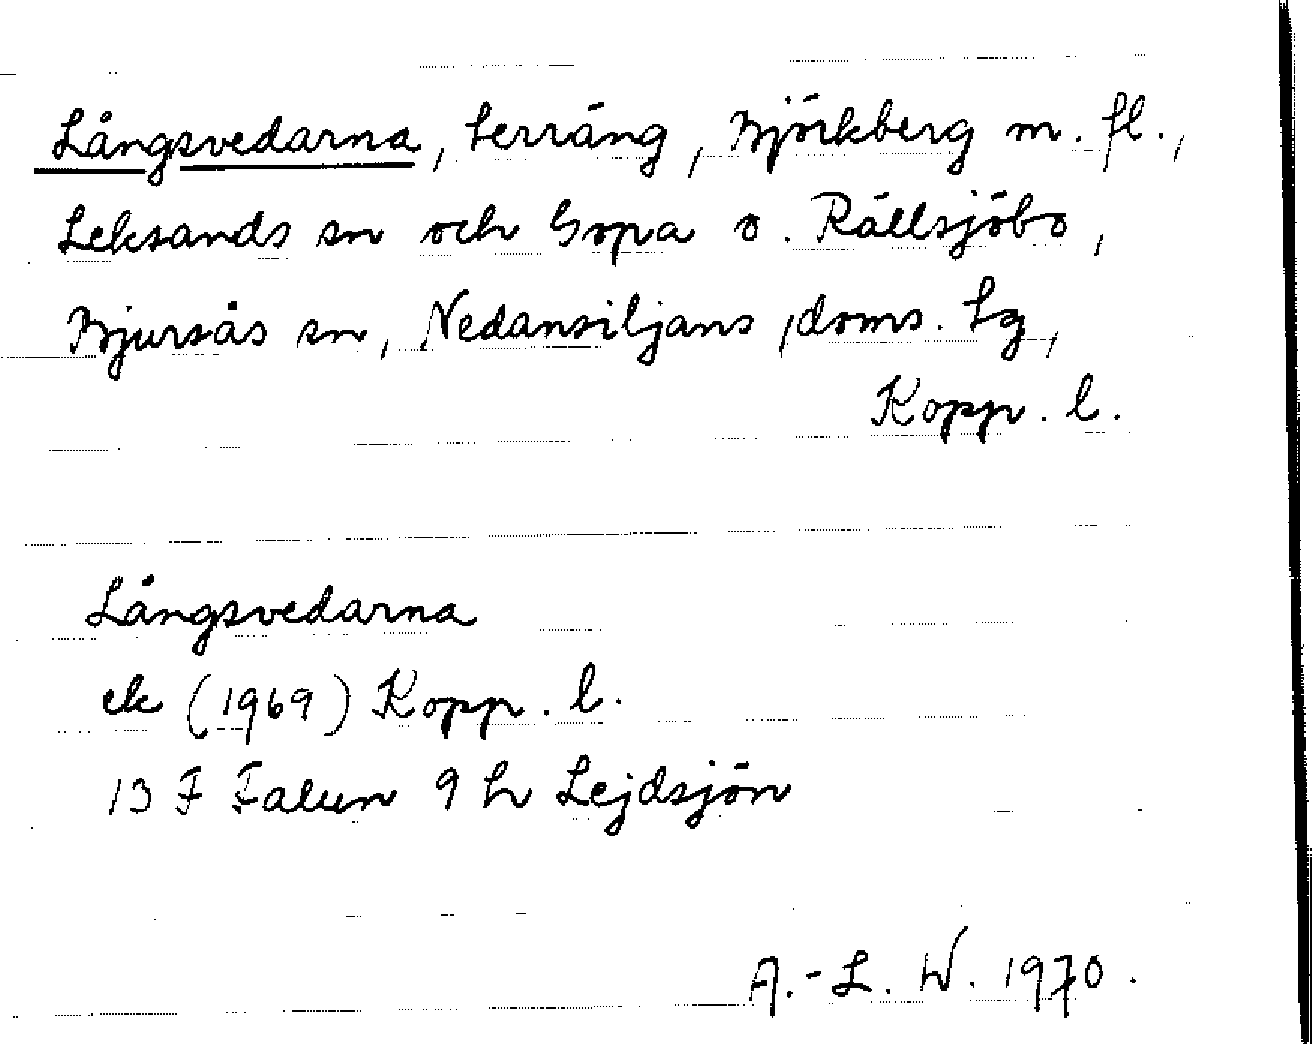 Långsvedarna, terräng, Björkberg m. fl.,
Leksands sn och Gopa o. Rällsjöbo,
Bjursås sn, Nedansiljans doms. tg,
Kopp. l.
Långsvedarna
ek (1969) Kopp. l.
13 F Falun 9 h Lejdsjön
A.-L. W. 1970.